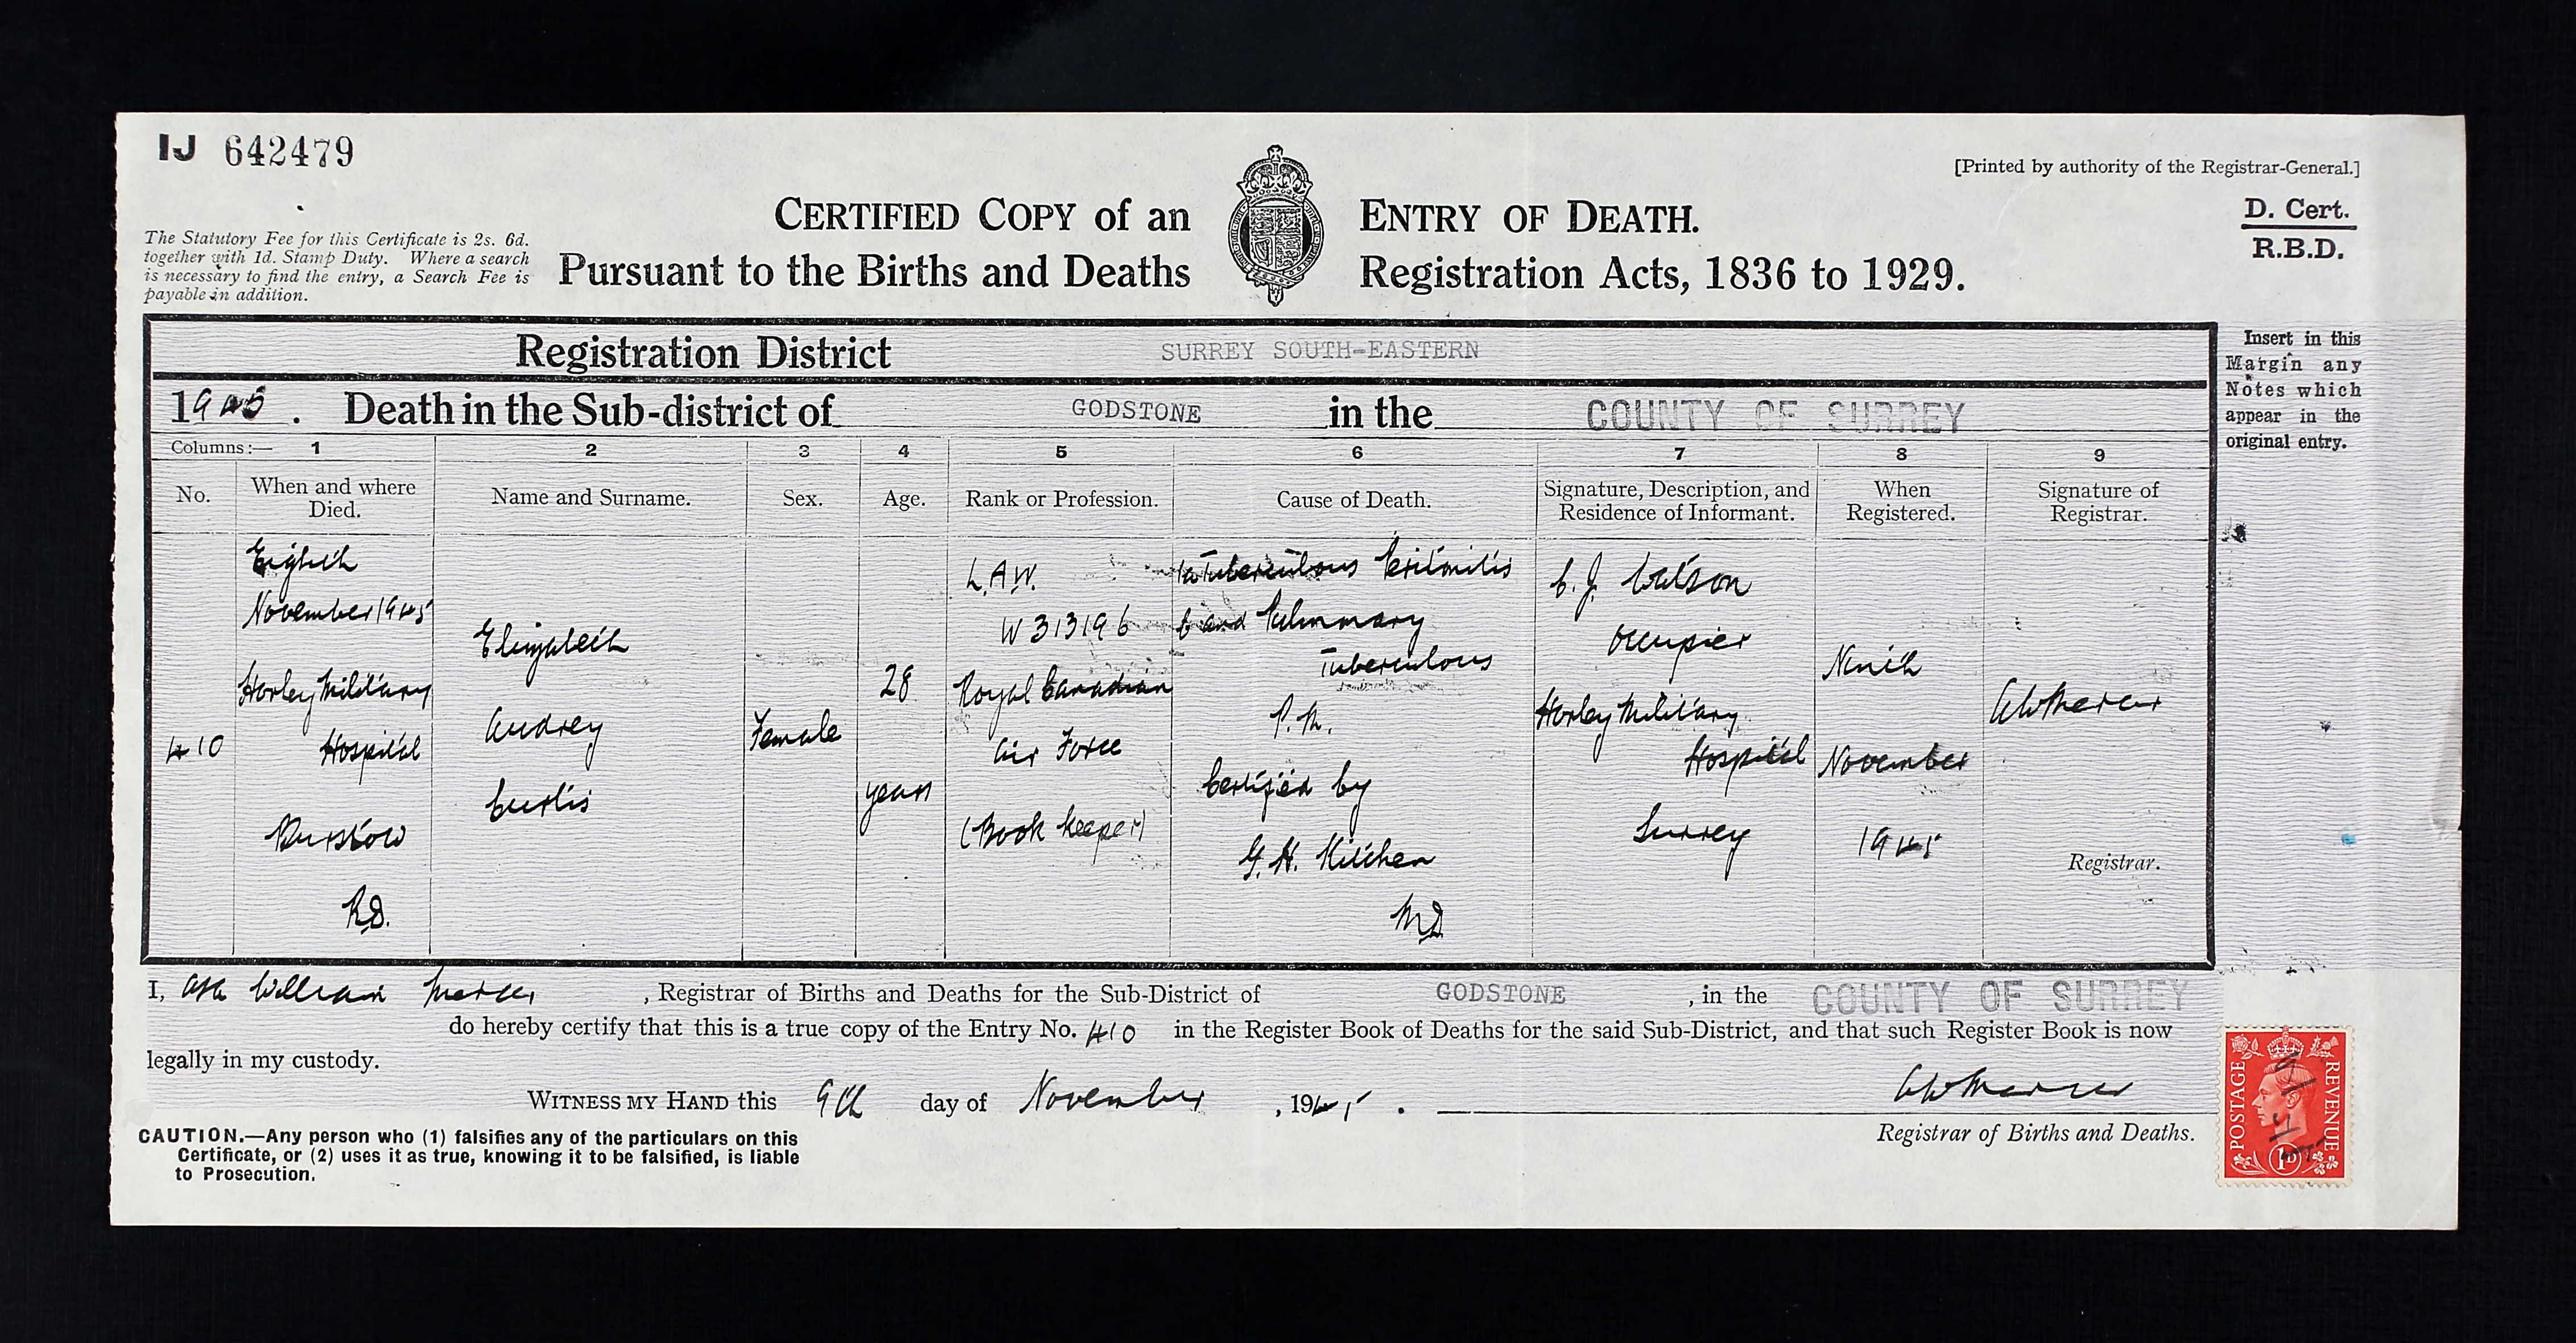 IJ 642479
[Printed by authority of the Registrar-General.]
D. Cert.
R.B.D.
The Statutory Fee for this Certificate is 2s. 6d.
together with 1d. Stamp Duty. Where a search
is necessary to find the entry, a Search Fee is
payable in addition.
CERTIFIED COPY of an ENTRY OF DEATH.
Pursuant to the Births and Deaths Registration Acts, 1836 to 1929.
Registration District SURREY SOUTH-EASTERN
1945. Death in the Sub-district of GODSTONE in the COUNTY OF SURREY
Insert in this
Margin any
Notes which
appear in the
original entry.
Columns:— 1 2 3 4 5 6 7 8 9
No.
When and where
Died.
Name and Surname.
Sex.
Age.
Rank or Profession.
Cause of Death.
Signature, Description, and
Residence of Informant.
When
Registered.
Signature of
Registrar.
410
Eighth
November 1945
Horley Military
Hospital
Burstow
R.D.
Elizabeth
Audrey
Curtis
Female
28
years
L.A.W.
W313196
Royal Canadian
Air Force
(Book keeper)
1a Tuberculous Peritonitis
b and Pulmonary
Tuberculous
P.M.
Certified by
G. H. Kitchen
MD
C. J. Watson
Occupier
Horley Military
Hospital
Surrey
Ninth
November
1945
A W Mercer
Registrar.
I, William Mercer, Registrar of Births and Deaths for the Sub-District of GODSTONE, in the COUNTY OF SURREY
do hereby certify that this is a true copy of the Entry No. 410 in the Register Book of Deaths for the said Sub-District, and that such Register Book is now
legally in my custody.
WITNESS MY HAND this 9th day of November, 1945.
A W Mercer
Registrar of Births and Deaths.
CAUTION.—Any person who (1) falsifies any of the particulars on this
Certificate, or (2) uses it as true, knowing it to be falsified, is liable
to Prosecution.
POSTAGE
REVENUE
1D